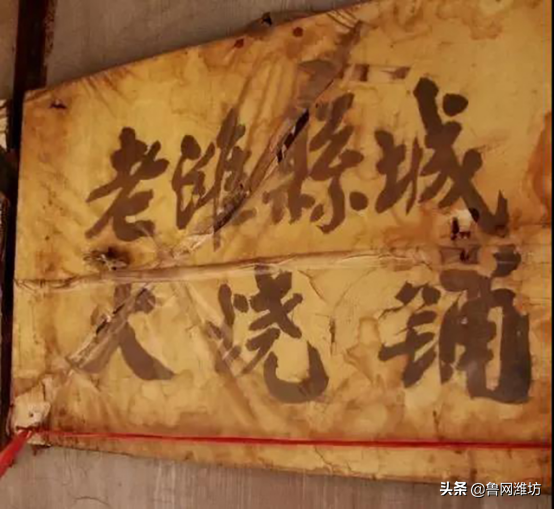 老潍縣城
火烧铺
头条 @鲁网潍坊